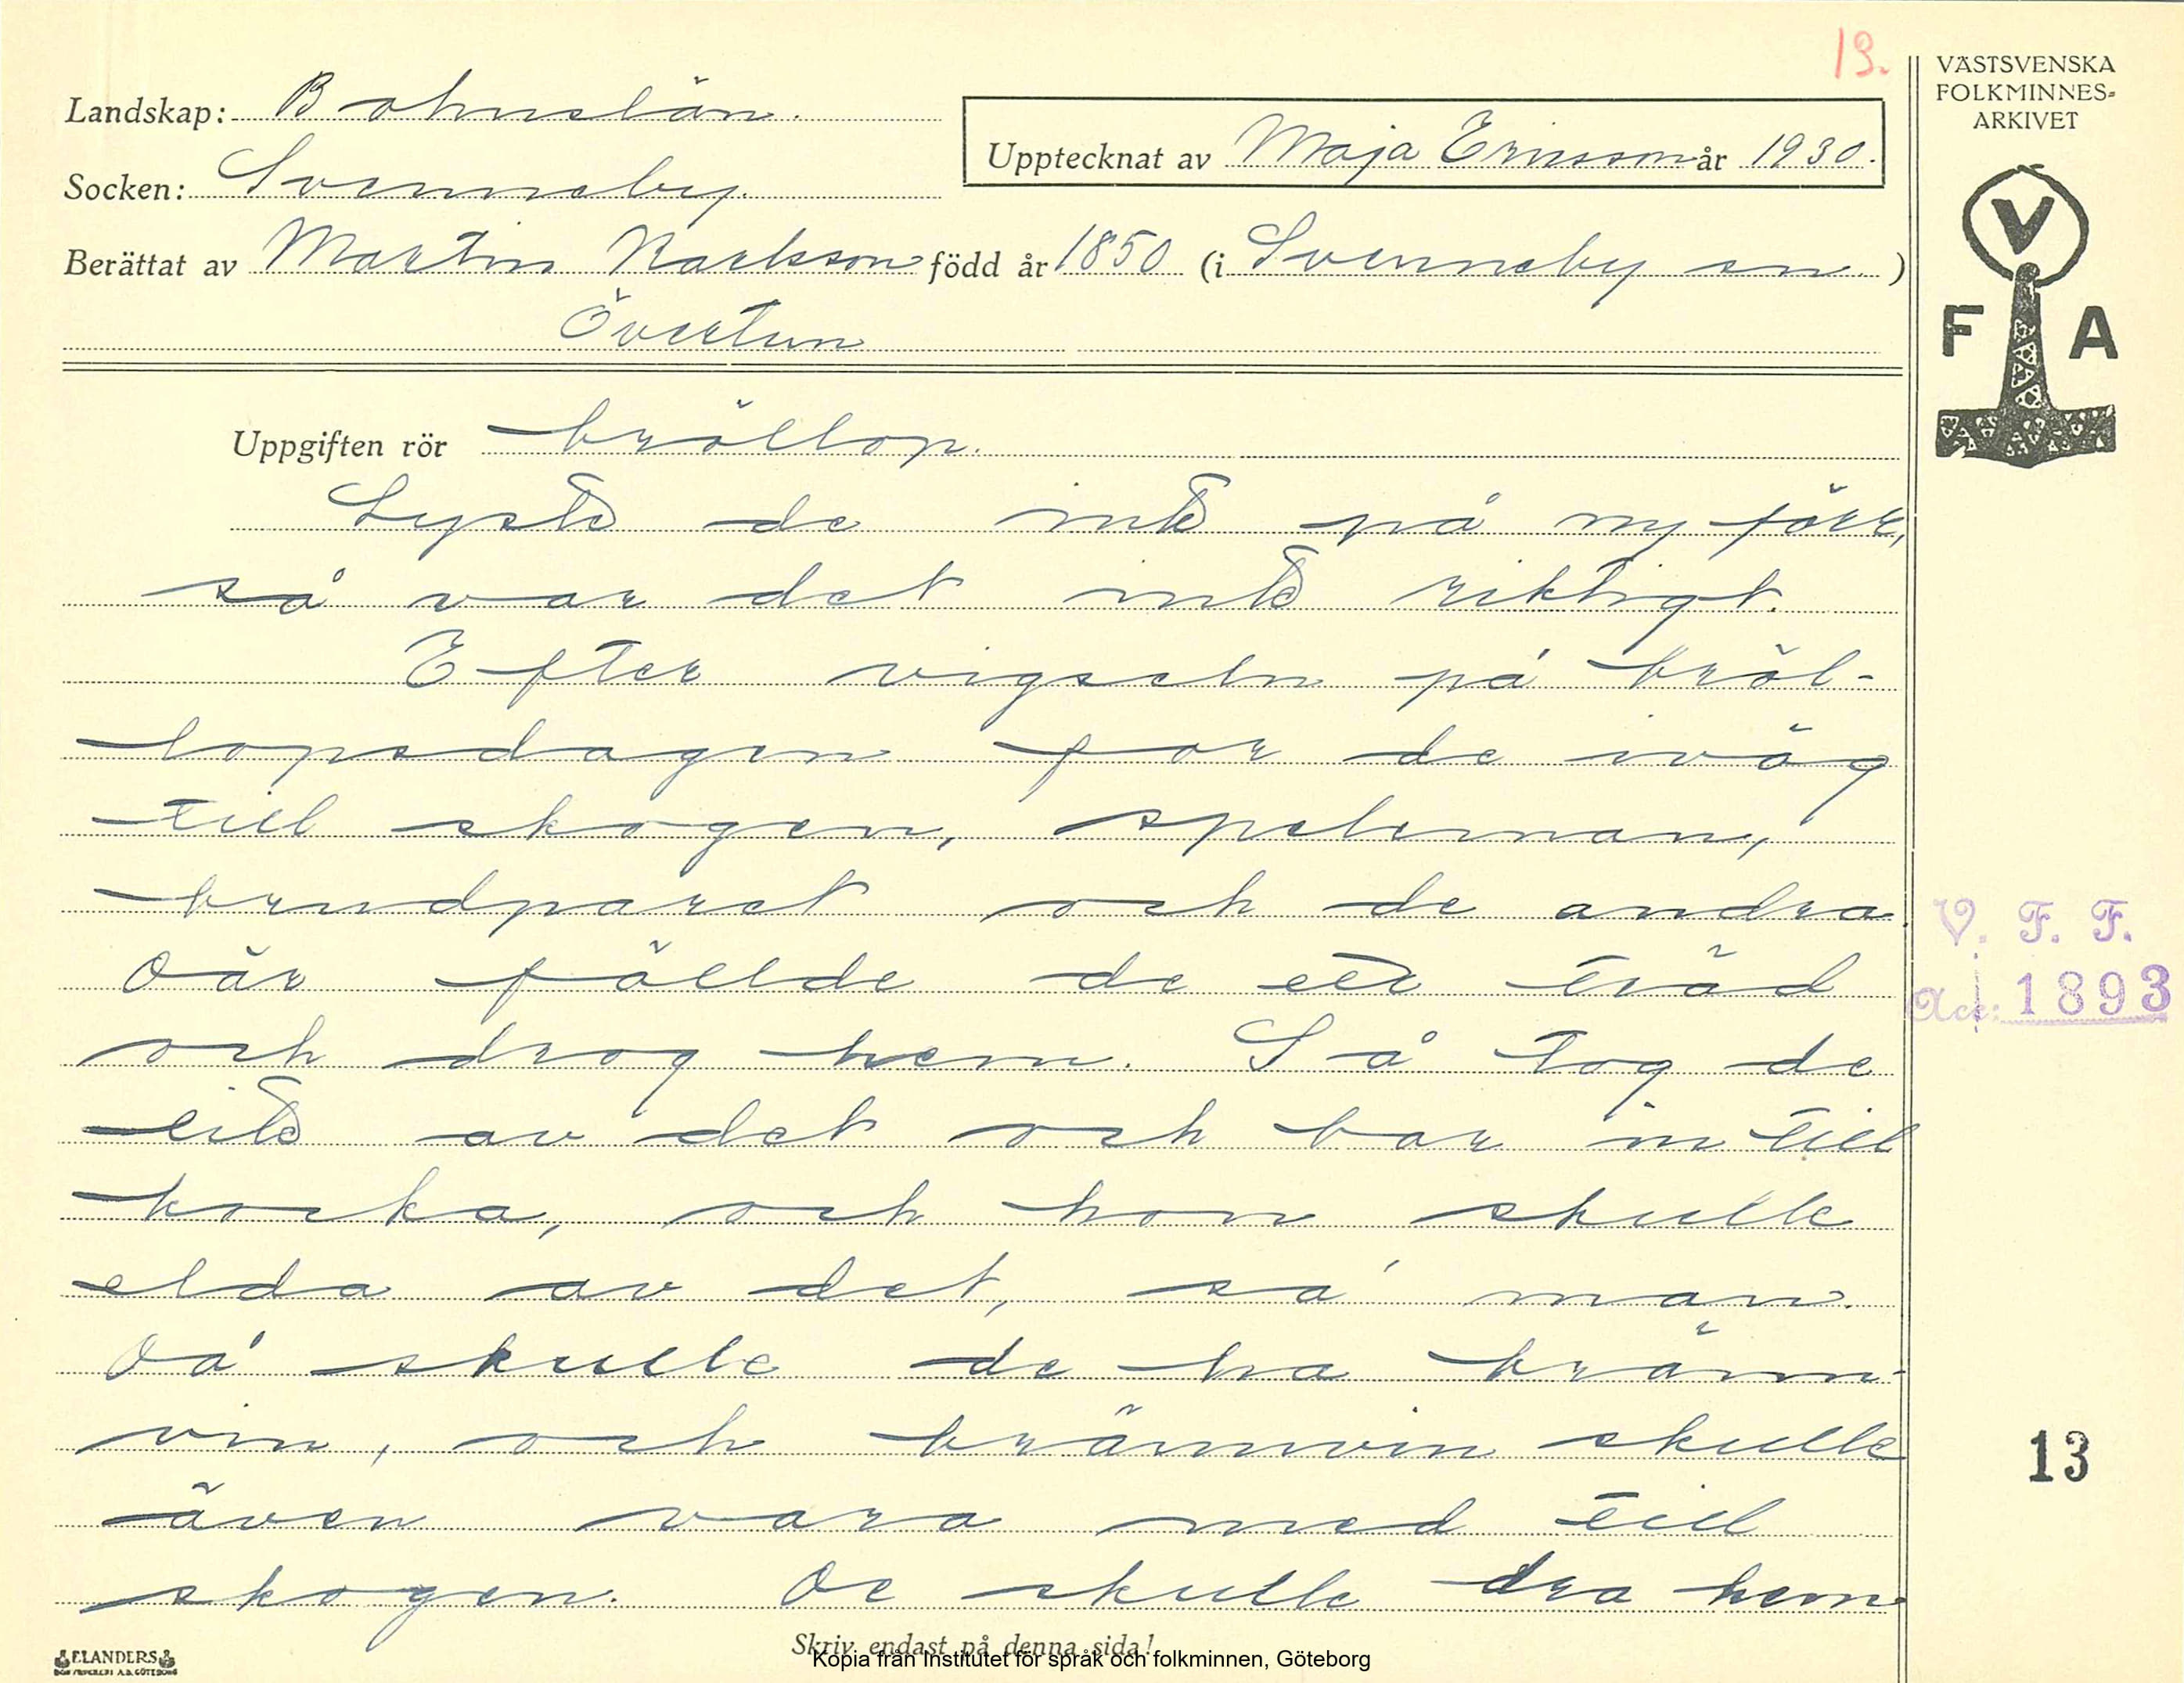 13.
VÄSTSVENSKA
FOLKMINNES-
ARKIVET
Landskap: Bohuslän.
Upptecknat av Maja Ericsson år 1930.
Socken: Svenneby.
Berättat av Martin Karlsson född år 1850 (i Svenneby sn. )
Övertun
V
F A
Uppgiften rör bröllop.
Lyste de inte på ny förr,
så var det inte riktigt.
Efter vigseln på bröl-
lopsdagen for de iväg
till skogen, speleman,
brudparet och de andra.
Där fällde de ett träd
och drog hem. Så tog de
lite av det och bar in till
kocka, och hon skulle
elda av det, sa man.
Då skulle de ha bränn-
vin, och brännvin skulle
även vara med till
skogen. De skulle dra hem
V. F. F.
Acc: 1893
13
ELANDERS
Skriv endast på denna sida!
Kopia från Institutet för språk och folkminnen, Göteborg